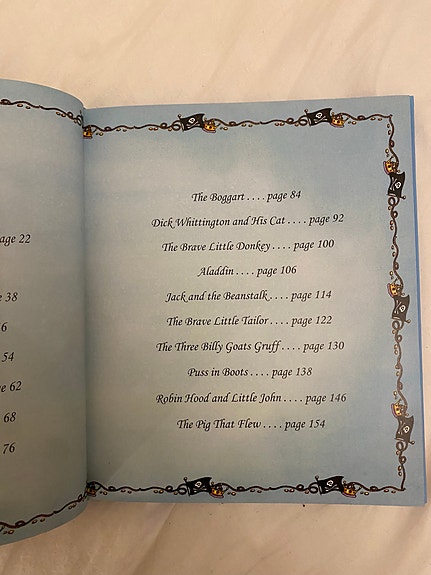 age 22
38
6
54
e 62
68
76
The Boggart . . . . page 84
Dick Whittington and His Cat . . . . page 92
The Brave Little Donkey . . . . page 100
Aladdin . . . . page 106
Jack and the Beanstalk . . . . page 114
The Brave Little Tailor . . . . page 122
The Three Billy Goats Gruff . . . . page 130
Puss in Boots . . . . page 138
Robin Hood and Little John . . . . page 146
The Pig That Flew . . . . page 154